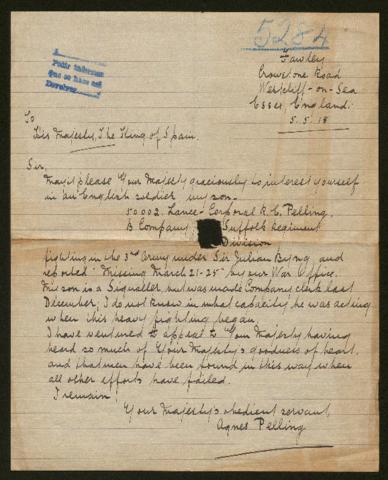 5284
Fawley
Crowstone Road
Westcliff-on-Sea
Essex, England.
5.5.18
Pedir informes
que se hace acá
Devolver
To
His Majesty, The King of Spain.
Sir,
May it please Your Majesty graciously to interest yourself
in an English soldier my son-
50002. Lance-Corporal R. C. Pelling.
B Company Suffolk Regiment
Division
fighting in the 3rd Army under Sir Julian Byng and
reported "Missing March 21-25" by our War Office.
My son is a Signaller, but was made Company clerk last
December, I do not know in what capacity he was acting
when this heavy fighting began.
I have ventured to appeal to Your Majesty having
heard so much of Your Majesty's goodness of heart,
and that men have been found in this way when
all other efforts have failed.
I remain
Your Majesty's obedient servant
Agnes Pelling